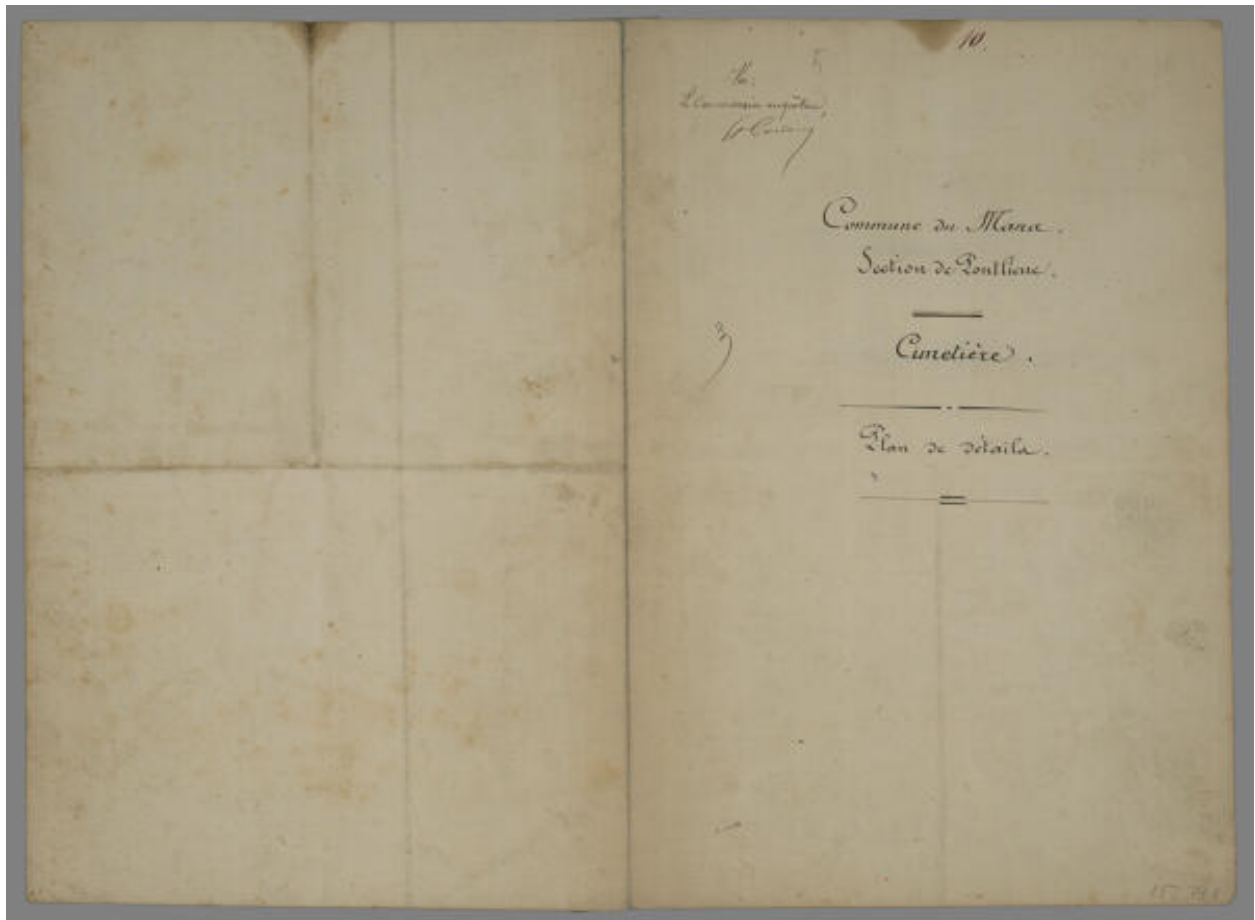 10.
Vu:
Le Commissaire enquêteur,
Commune du Mans.
Section de Pontlieue.
Cimetière.
Plan de détails.